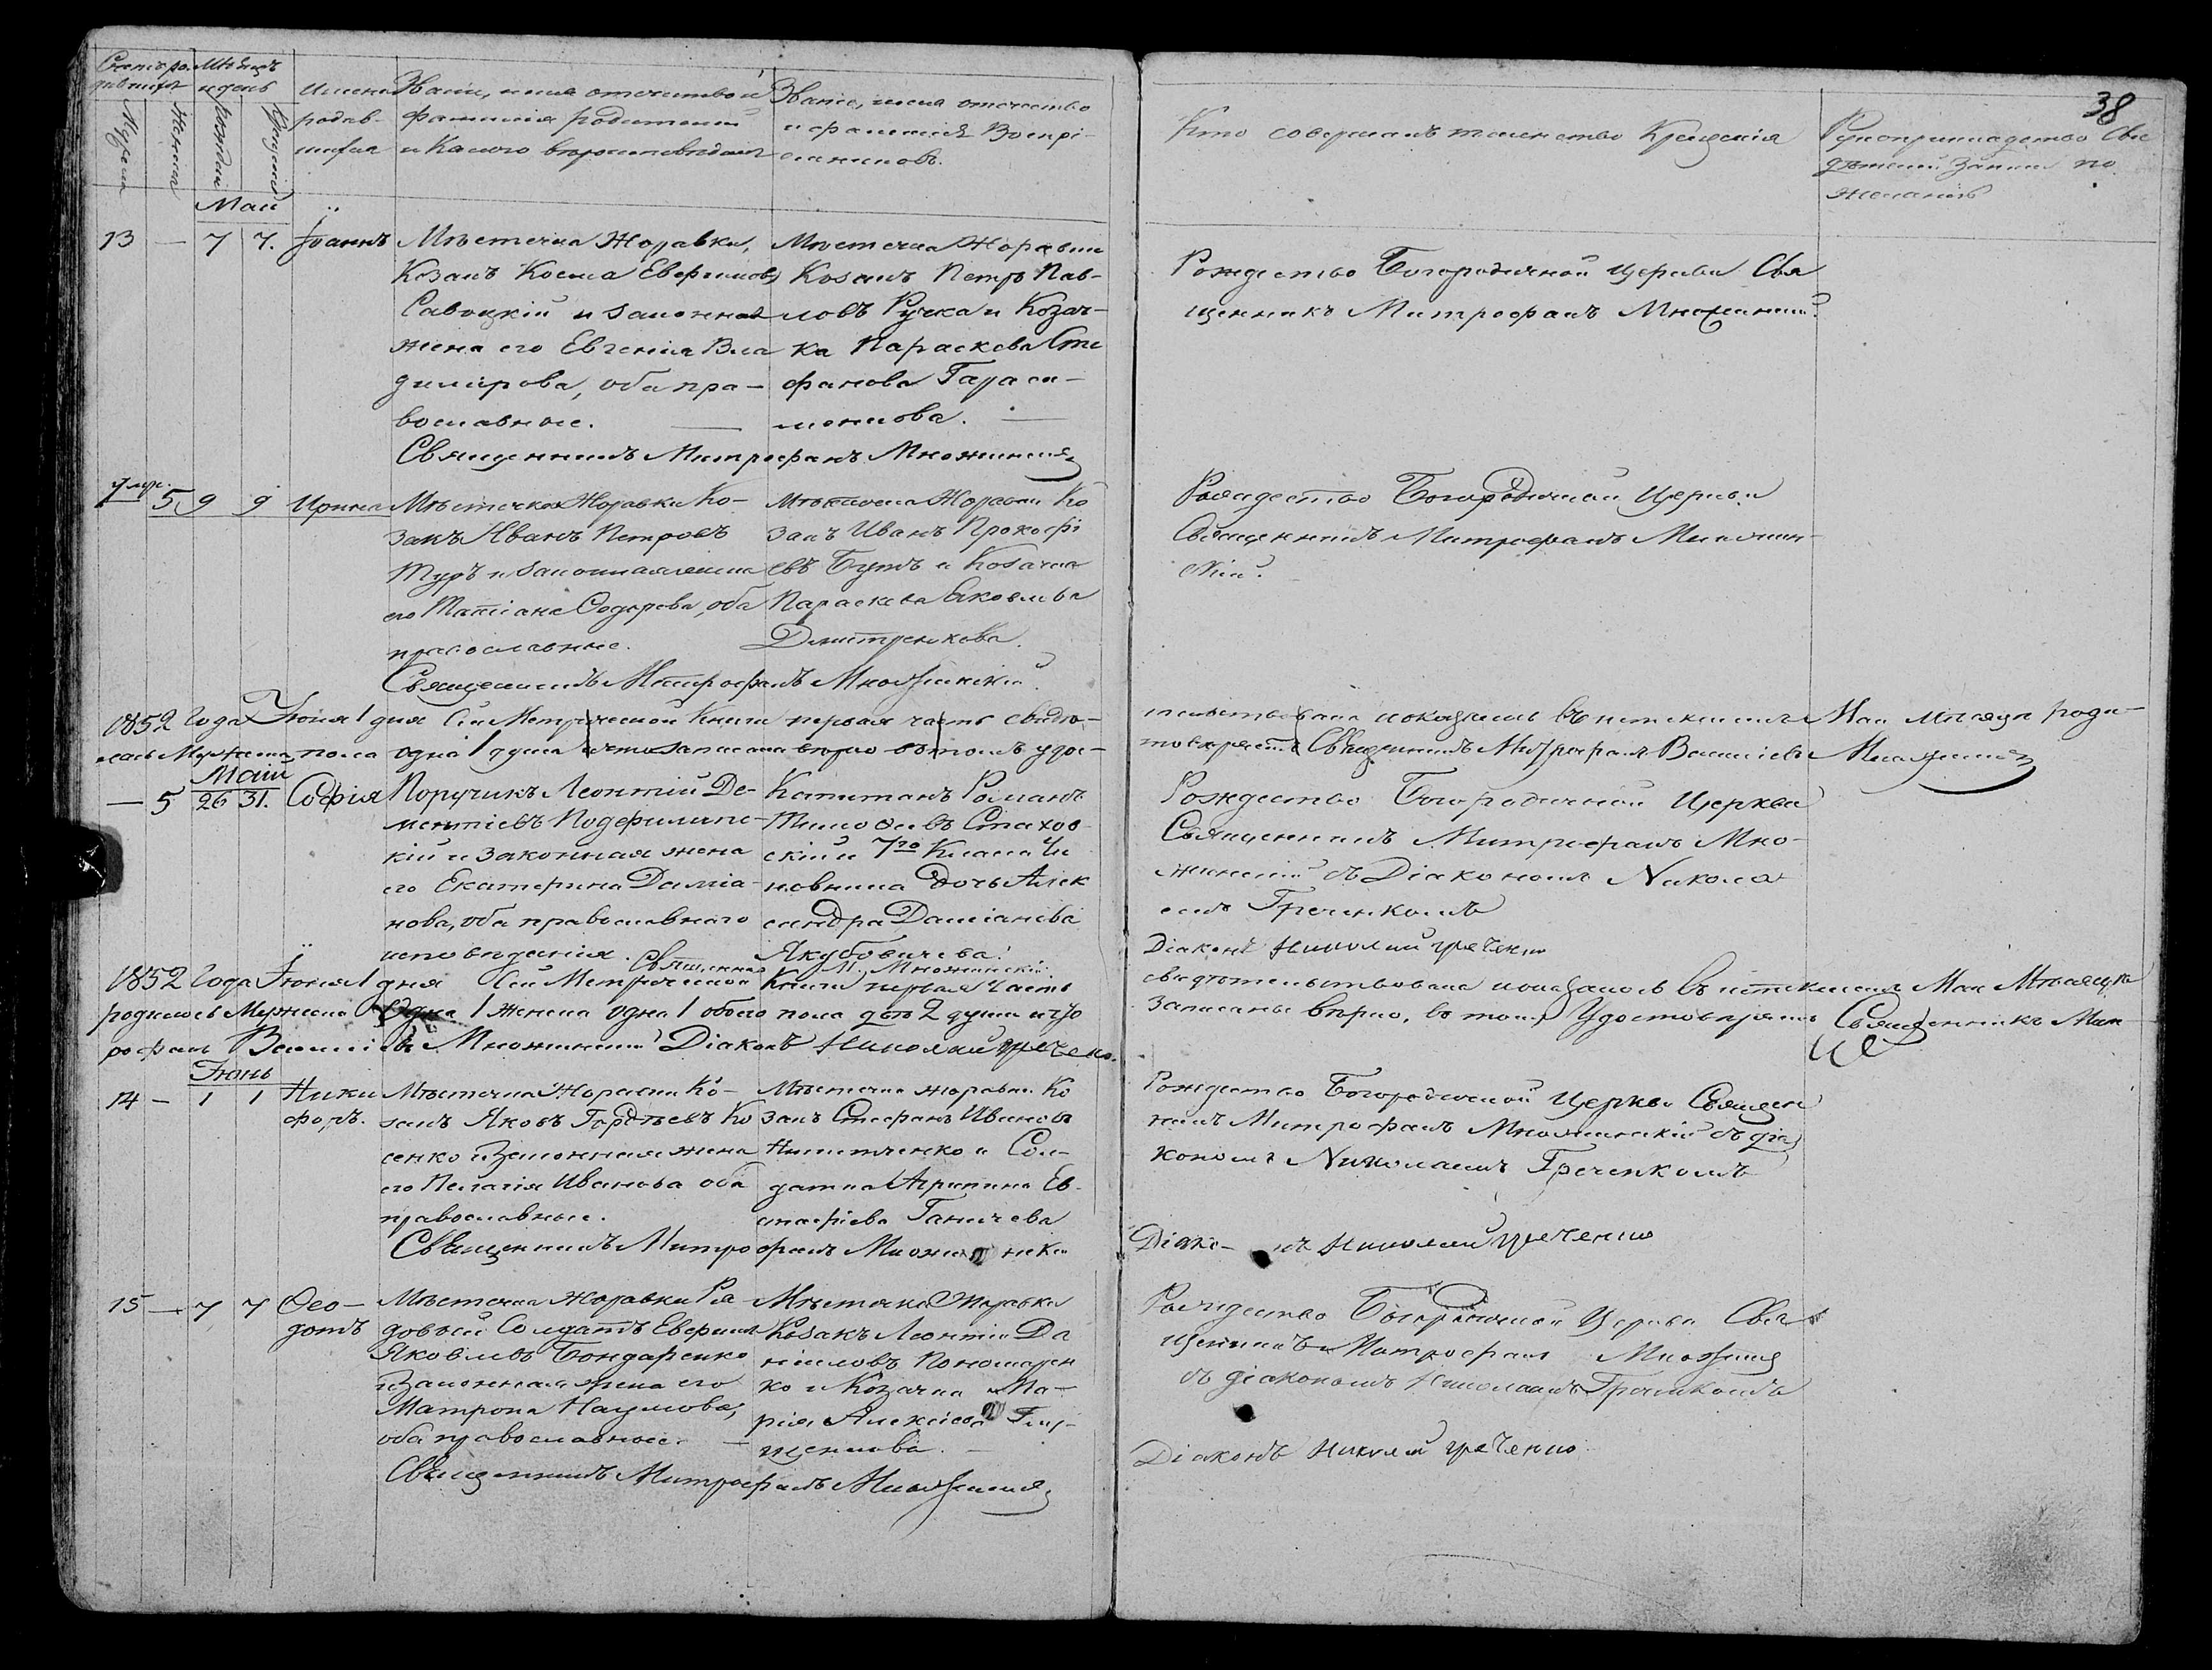 38
Счетъ ро-
дившихся
Мѣсяцъ
и день
Мужеска
Женска
Рожденія
Крещенія
Имена
родив-
шихся
Званіе, имя отечество и
фамилія родителей
и Какого вѣроисповѣданія
Званіе, имя отечество
и фамилія Воспрі-
емниковъ.
Кто совершалъ таинство Крещенія
Рукоприкладство Сви
дѣтелей записи по
желанію
Май
13 — 7 7. Іоаннъ
Мѣстечка Жоравки,
Козакъ Косма Евфимовъ
Савицкій и законная
жена его Евгенія Вла
димірова, оба пра-
вославные.
Мѣстечка Жоравки
Козакъ Петръ Пав-
ловъ Ручка и Козач-
ка Параскева Сте
фанова Гараси-
менкова.
Священникъ Митрофанъ Множинскій
Рождество Богородичной Церкви Свя
щенникъ Митрофанъ Множинскій
умр.
5 9 9 Ирина
Мѣстечка Жоравки Ко-
закъ Иванъ Петровъ
Туръ и законная жена
его Татіана Сидорова, оба
православные.
Мѣстечка Жоравки Ко
закъ Иванъ Прокофі
евъ Бутъ и Козачка
Параскева Яковлева
Дмитренкова.
Священникъ Митрофанъ Множинскій
Рождество Богородичной Церкви
Священникъ Митрофанъ Множин-
скій.
1852 Года Іюня 1 дня Сій Метрической Книги первая часть свидѣ-
тельствована и оказалось въ истекшемъ Маи мѣсяцѣ роди-
лась Мужеска пола одна 1 душа и что записана вѣрно въ томъ удос-
товѣряетъ Священникъ Митрофанъ Василіевъ Множинскій
Май
— 5 26 31. Софія
Поручикъ Леонтій Де-
ментіевъ
кій и законная жена
его Екатерина Даміа-
нова, оба православнаго
исповѣданія.
Капитанъ Романъ
Тимофеевъ Стахов-
скій и 7го Класса Чи
новника дочь Алек
сандра Даміанова
Якубовичева.
Священникъ М. Множинскій.
Рождество Богородичной Церкви
Священникъ Митрофанъ Мно-
жинскій съ Діакономъ Никола-
емъ Греченкомъ
Діаконъ Николай Греченко
1852 Года Іюня 1 дня Сій Метрической Книги первая Часть
свидѣтельствована и оказалось въ истекшемъ Маи Мѣсяцѣ
родилось Мужеска Одна 1 Женска одна 1 обоего пола двѣ 2 души и что
записаны вѣрно, въ томъ Удостовѣряетъ Священникъ Мит
рофанъ Василіевъ Множинскій Діаконъ Николай Греченко.
Іюнь
14 — 1 1 Ники
форъ.
Мѣстечка Жоравки Ко-
закъ Яковъ Гордѣевъ Ко
сенко и Законная жена
его Пелагія Иванова оба
православные.
Мѣстечка Жоравки Ко
закъ Стефанъ Ивановъ
Никитченко и Сол-
датка Агрипина Ев-
стафіева Ганичева
Священникъ Митрофанъ Множинскій
Рождество Богородичной Церкви Священ
никъ Митрофанъ Множинскій съ діа
кономъ Николаемъ Греченкомъ
Діаконъ Николай Греченко
15 — 7 7 Ѳео-
дотъ
Мѣстечка Жоравки Ря
довый Солдатъ Евфимъ
Яковлевъ Бондаренко
и Законная жена его
Матрона Наумова,
оба православные.
Мѣстечка Жоравки
Козакъ Леонтій Да
ніиловъ Пономарен
ко и Козачка Ма-
рія Алексіева Глу-
щенкова.
Священникъ Митрофанъ Множинскій
Рождество Богородичной Церкви Свя
щенникъ Митрофанъ Множинскій
съ діакономъ Николаемъ Греченкомъ
Діаконъ Николай Греченко